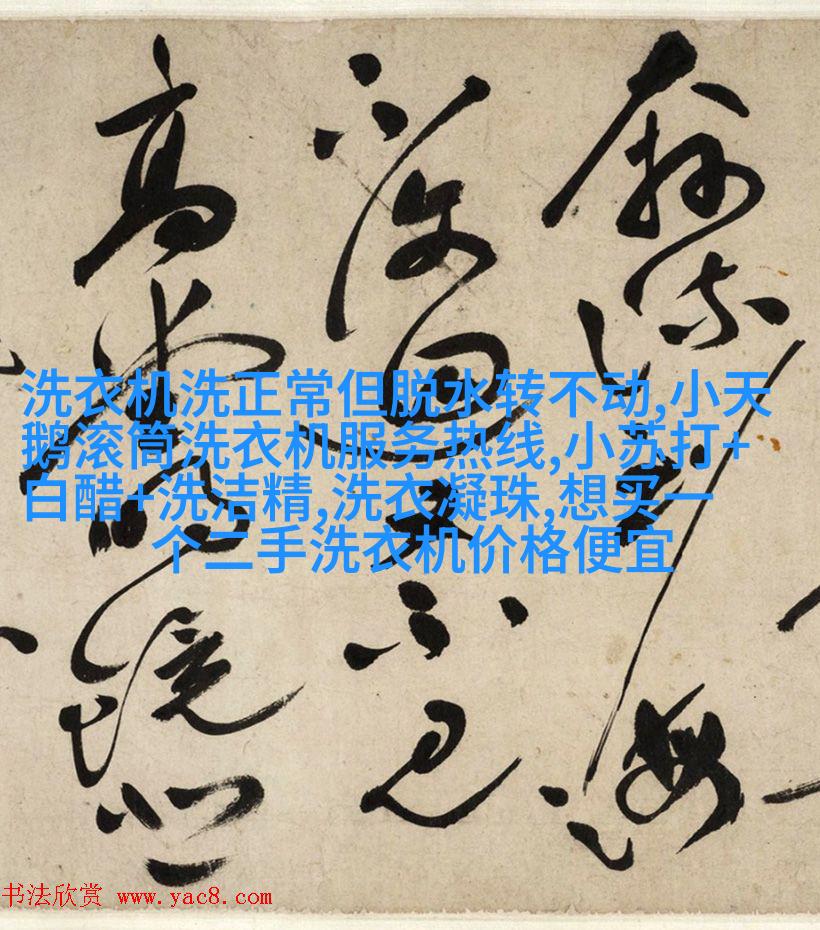 奔流到海
不復回君不見
高堂明鏡悲
洗衣机洗正常但脱水转不动,小天
鹅滚筒洗衣机服务热线,小苏打+
白醋+洗洁精,洗衣凝珠,想买一
个二手洗衣机价格便宜
书法欣赏 www.yac8.com